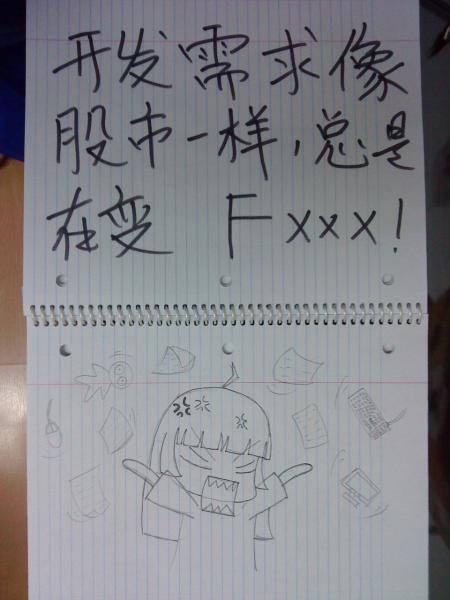 开发需求像
股市一样，总是
在变 Fxxx！